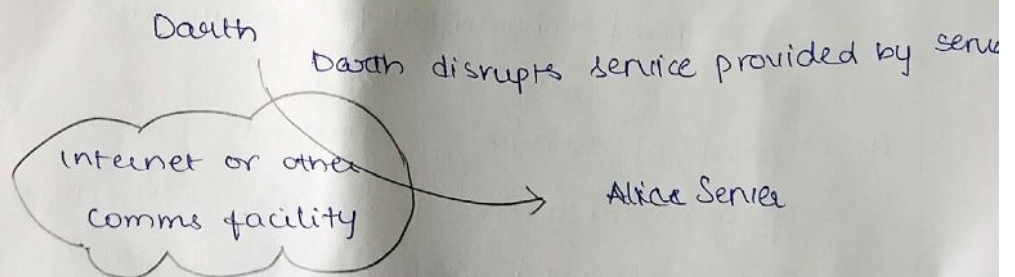 Darth
Darth disrupts service provided by serve
internet or other
comms facility
Server